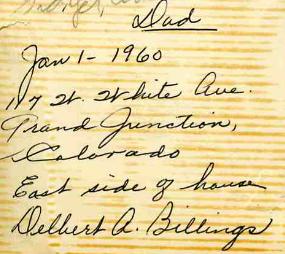 Dad
Jan 1 - 1960
117 W. White Ave.
Grand Junction,
Colorado
East side of house
Delbert A. Billings